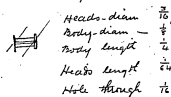 Heads-diam 3/16
Body-diam — 1/8
Body length 1/4
Heads length 1/64
Hole through 1/16